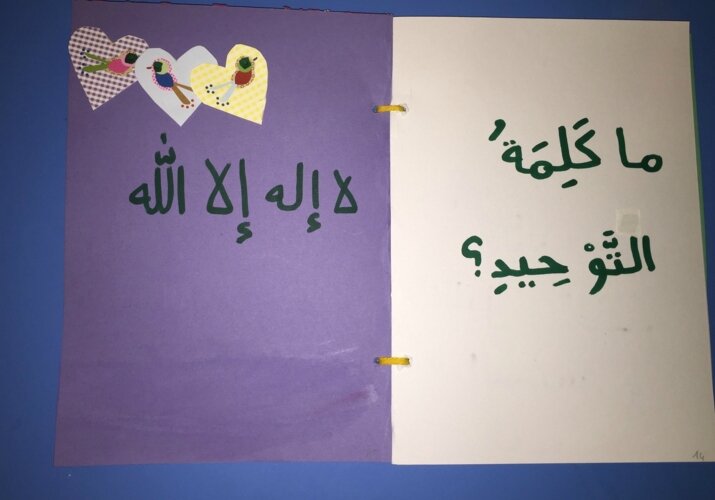 ما كَلِمَةُ
التَّوْحِيدِ؟
لا إله إلا الله
14